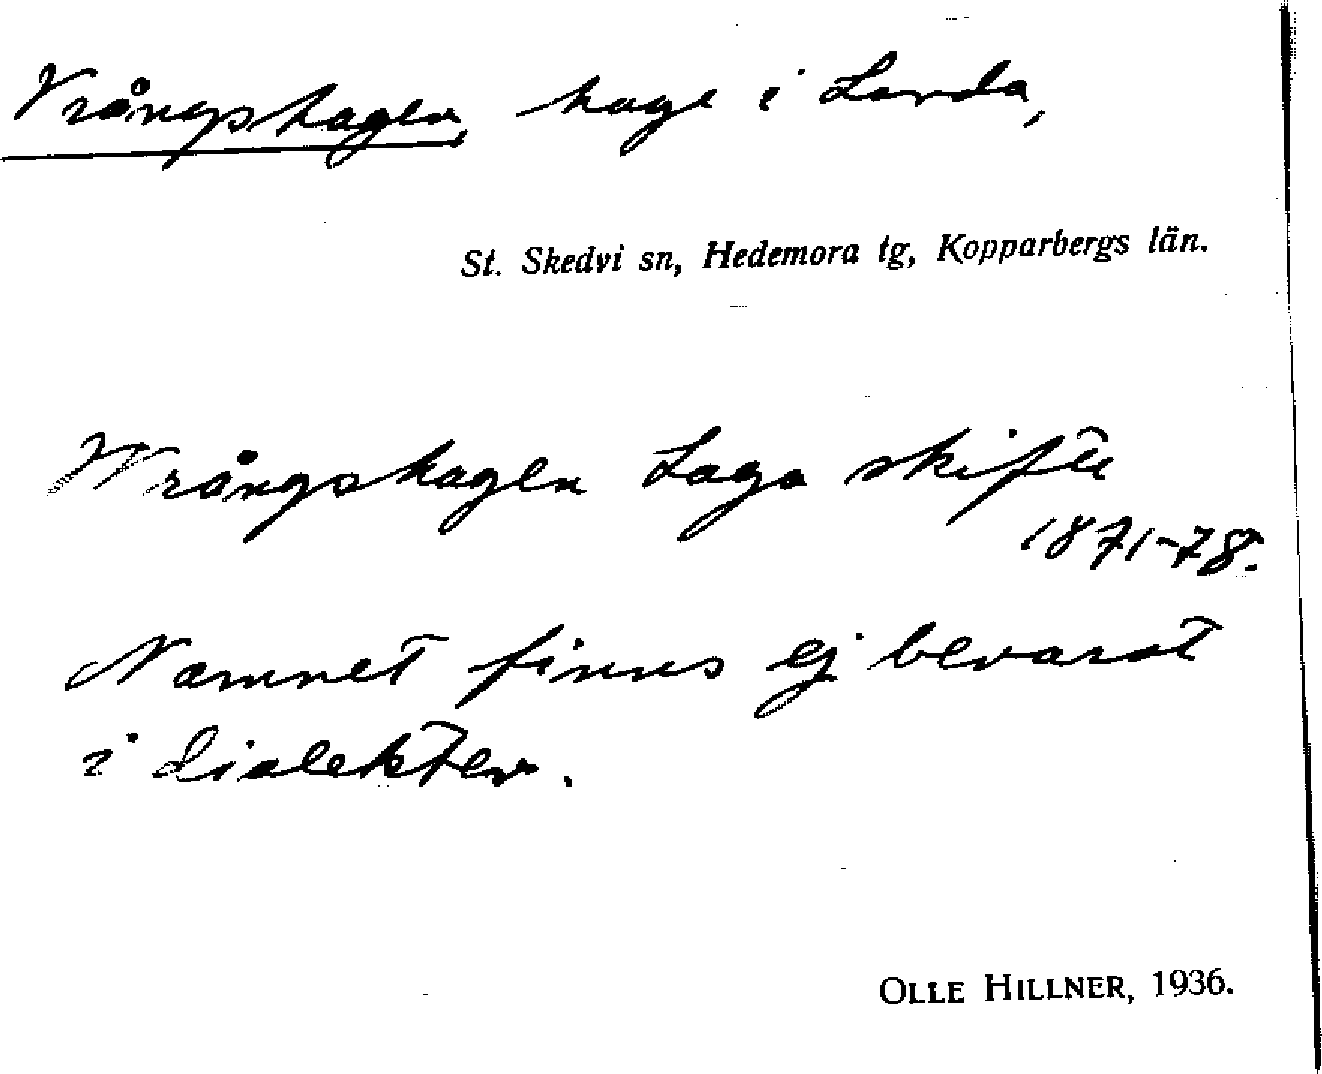 Vrångshagen, hage i Landa,
St. Skedvi sn, Hedemora tg, Kopparbergs län.
Wrångshagen Laga skifte
1871-78.
Namnet finns ej bevarat
i dialekten.
OLLE HILLNER, 1936.